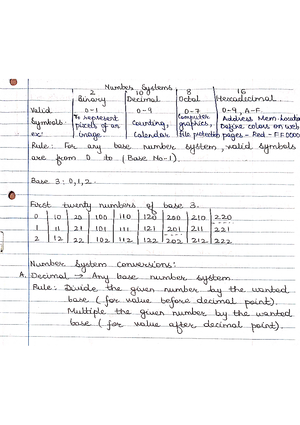 Number Systems
2 10 8 16
Binary Decimal Octal Hexadecimal.
Valid 0-1 0-9 0-7 0-9, A-F.
Symbols: To represent Counting, Computer Address Mem. Locations
pixels of an graphics, Define colors on web
ex: image. Calendar. file protected pages - Red - FF0000
Rule: For any base number system, valid symbols
are from 0 to (Base No-1).
Base 3: 0,1,2.
First twenty numbers of base 3.
0 10 20 100 110 120 200 210 220
1 11 21 101 111 121 201 211 221
2 12 22 102 112 122 202 212 222
Number System conversions:
A. Decimal → Any base number system
Rule: Divide the given number by the wanted
base (for value before decimal point).
Multiple the given number by the wanted
base (for value after decimal point).